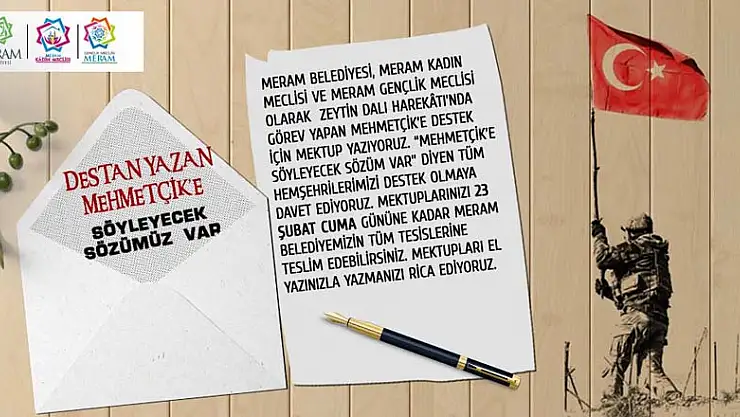 MERAM
KADIN MECLİSİ
GENÇLİK MECLİSİ
MERAM
DESTAN YAZAN
MEHMETÇİK'E
SÖYLEYECEK
SÖZÜMÜZ VAR
MERAM BELEDİYESİ, MERAM KADIN
MECLİSİ VE MERAM GENÇLİK MECLİSİ
OLARAK ZEYTİN DALI HAREKÂTI'NDA
GÖREV YAPAN MEHMETÇİK'E DESTEK
İÇİN MEKTUP YAZIYORUZ. "MEHMETÇİK'E
SÖYLEYECEK SÖZÜM VAR" DİYEN TÜM
HEMŞEHRİLERİMİZİ DESTEK OLMAYA
DAVET EDİYORUZ. MEKTUPLARINIZI 23
ŞUBAT CUMA GÜNÜNE KADAR MERAM
BELEDİYEMİZİN TÜM TESİSLERİNE
TESLİM EDEBİLİRSİNİZ. MEKTUPLARI EL
YAZINIZLA YAZMANIZI RİCA EDİYORUZ.